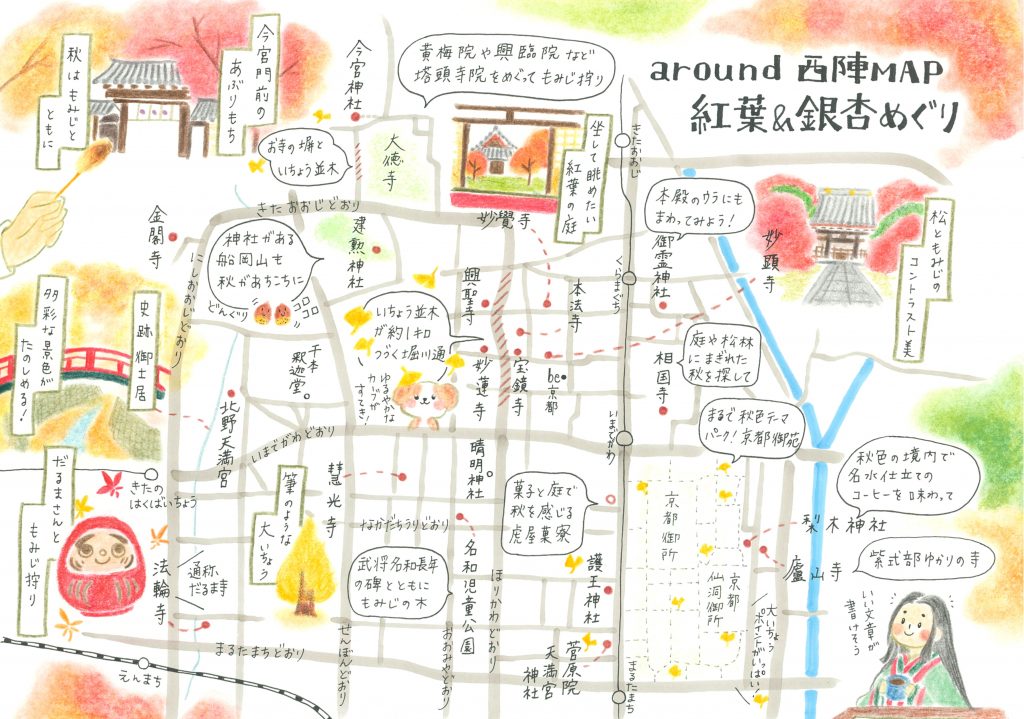 around 西陣MAP
紅葉&銀杏めぐり
秋はもみじと
ともに
今宮門前の
あぶりもち
今宮神社
黄梅院や興臨院など
塔頭寺院をめぐってもみじ狩り
お寺の塀と
いちょう並木
大徳寺
坐して眺めたい
紅葉の庭
きたおおじ
本殿のウラにも
まわってみよう!
松ともみじの
コントラスト美
妙顕寺
金閣寺
きたおおじどおり
にしおおじどおり
神社がある
船岡山も
秋があちこちに
どんぐり
コロコロ
建勲神社
妙覺寺
興聖寺
本法寺
くらまぐち
御霊神社
多彩な景色が
たのしめる!
史跡御土居
いちょう並木
が約1キロ
つづく堀川通
千本
釈迦堂
ゆるやかな
カーブが
すてき!
妙蓮寺
宝鏡寺
be京都
相国寺
庭や松林
にまぎれた
秋を探して
北野天満宮
いまでがわどおり
いまでがわ
まるで秋色テーマ
パーク!京都御苑
きたの
はくばいちょう
晴明神社
慧光寺
筆のような
大いちょう
菓子と庭で
秋を感じる
虎屋菓寮
京都御所
秋色の境内で
名水仕立ての
コーヒーを味わって
梨木神社
だるまさんと
もみじ狩り
なかだちうりどおり
武将名和長年
の碑とともに
もみじの木
名和児童公園
ほりかわどおり
護王神社
仙洞御所
京都
廬山寺
紫式部ゆかりの寺
法輪寺
通称、
だるま寺
まるたまちどおり
えんまち
せんぼんどおり
おおみやどおり
菅原院
天満宮
神社
まるたまち
大いちょう
ポイントがいっぱい!
いい文章が
書けそう